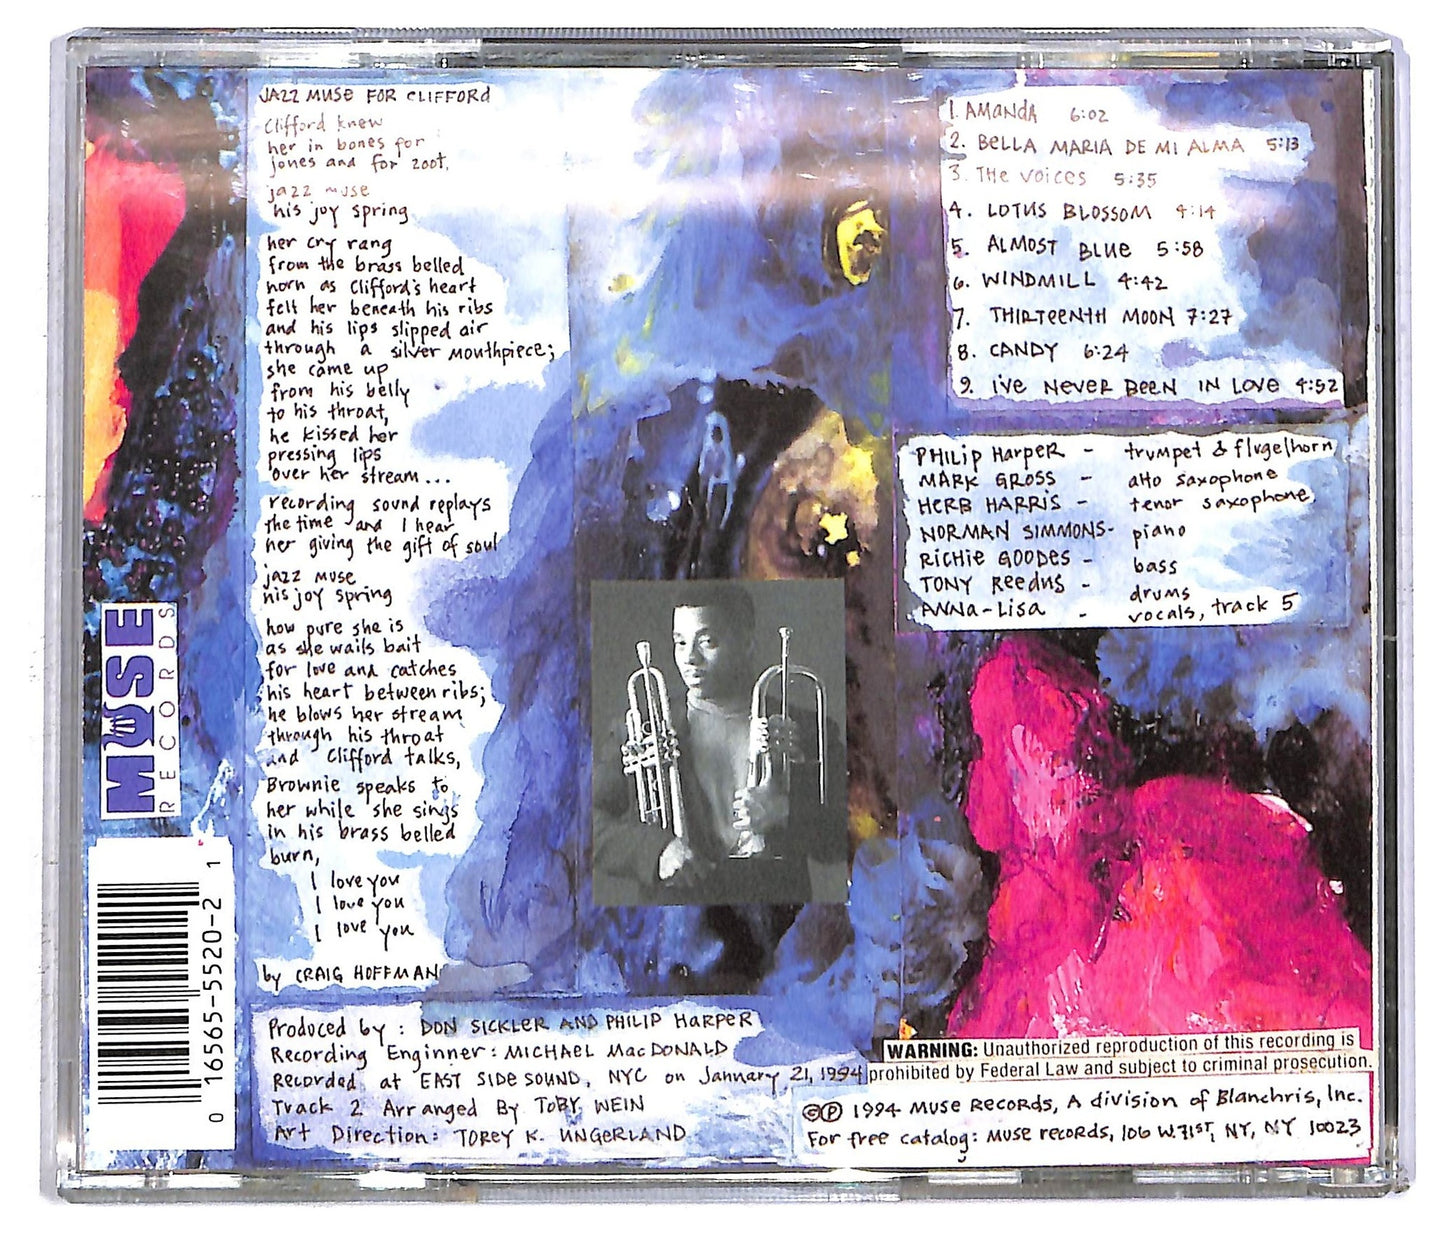 JAZZ MUSE FOR CLIFFORD
Clifford knew
her in bones for
jones and for zoot.
jazz muse
his joy spring
her cry rang
from the brass belled
horn as Clifford's heart
felt her beneath his ribs
and his lips slipped air
through a silver mouthpiece;
she came up
from his belly
to his throat,
he kissed her
pressing lips
over her stream...
recording sound replays
the time and I hear
her giving the gift of soul
jazz muse
his joy spring
how pure she is
as she wails bait
for love and catches
his heart between ribs;
he blows her stream
through his throat
and Clifford talks,
Brownie speaks to
her while she sings
in his brass belled
burn,
I love you
I love you
I love you
by CRAIG HOFFMAN
1. AMANDA 6:02
2. BELLA MARIA DE MI ALMA 5:13
3. THE VOICES 5:35
4. LOTUS BLOSSOM 4:14
5. ALMOST BLUE 5:58
6. WINDMILL 4:42
7. THIRTEENTH MOON 7:27
8. CANDY 6:24
9. I'VE NEVER BEEN IN LOVE 4:52
PHILIP HARPER - trumpet & flugelhorn
MARK GROSS - alto saxophone
HERB HARRIS - tenor saxophone
NORMAN SIMMONS - piano
RICHIE GOODES - bass
TONY REEDUS - drums
ANNA-LISA - vocals, track 5
MUSE
RECORDS
0 16565-5520-2 1
Produced by: DON SICKLER AND PHILIP HARPER
Recording Enginner: MICHAEL MacDONALD
Recorded at EAST SIDE SOUND, NYC on January 21, 1994
Track 2 Arranged By TOBY WEIN
Art Direction: TOREY K. UNGERLAND
WARNING: Unauthorized reproduction of this recording is
prohibited by Federal Law and subject to criminal prosecution.
©℗ 1994 MUSE RECORDS, A division of Blanchris, Inc.
For free catalog: MUSE RECORDS, 106 W. 71ST, NY, NY 10023